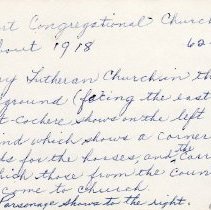 rst Congregational Church
bout 1918 62
y Lutheran Church in th
ground (facing the east
t-cochere shows on the left
ind which shows a corner
ds for the horses, and the carr
hich those from the coun
come to church.
Parsonage shows to the right.